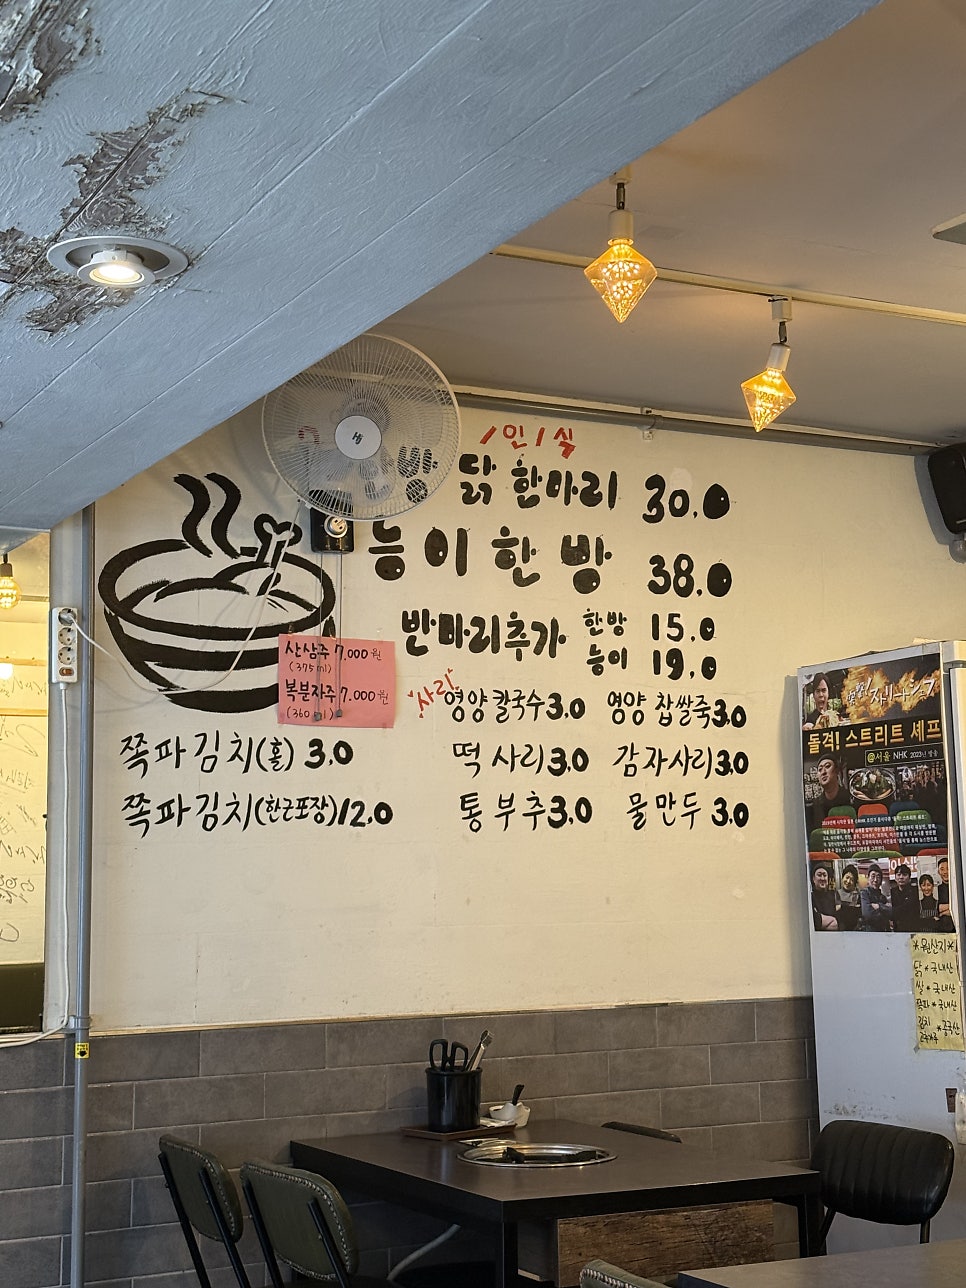 1인1식
방 닭한마리 30.0
능이한방 38.0
반마리추가 한방 15.0
능이 19.0
산삼주 7,000원
(375ml)
복분자주 7,000원
(360ml)
사리
영양칼국수 3.0 영양찹쌀죽 3.0
쪽파김치(홀) 3.0 떡사리 3.0 감자사리 3.0
쪽파김치(한근포장) 12.0 통부추 3.0 물만두 3.0
돌격! 스트리트 셰프
@서울 NHK 2023년 방송
*원산지*
닭*국내산
쌀*국내산
쪽파*국내산
김치
고추가루 *중국산